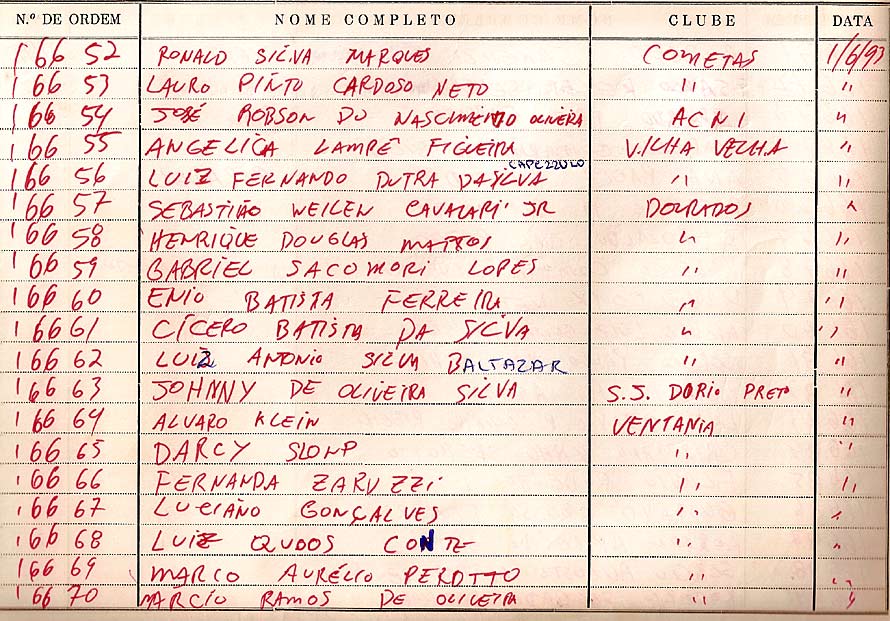 N.º DE ORDEM NOME COMPLETO CLUBE DATA
16652 RONALD SILVA MARQUES COMETAS 1/6/93
16653 LAURO PINTO CARDOSO NETO " "
16654 JOSÉ ROBSON DO NASCIMENTO OLIVEIRA ACNI "
16655 ANGELICA LAMPÉ FIGUEIRA VILHA VELHA "
CAPEZZULO
16656 LUIZ FERNANDO DUTRA DA SILVA " "
16657 SEBASTIÃO WEILEN CAVALARI JR DOURADOS "
16658 HENRIQUE DOUGLAS MATTOS " "
16659 GABRIEL SACOMORI LOPES " "
16660 ENIO BATISTA FERREIRA " "
16661 CÍCERO BATISTA DA SILVA " "
16662 LUIZ ANTONIO SILVA BALTAZAR " "
16663 JOHNNY DE OLIVEIRA SILVA S.J. DO RIO PRETO "
16664 ALVARO KLEIN VENTANIA "
16665 DARCY SLOMP " "
16666 FERNANDA ZARUZZI " "
16667 LUCIANO GONÇALVES " "
16668 LUIZ CONTE " "
16669 MARCO AURÉLIO PEROTTO " "
16670 MARCIO RAMOS DE OLIVEIRA " "